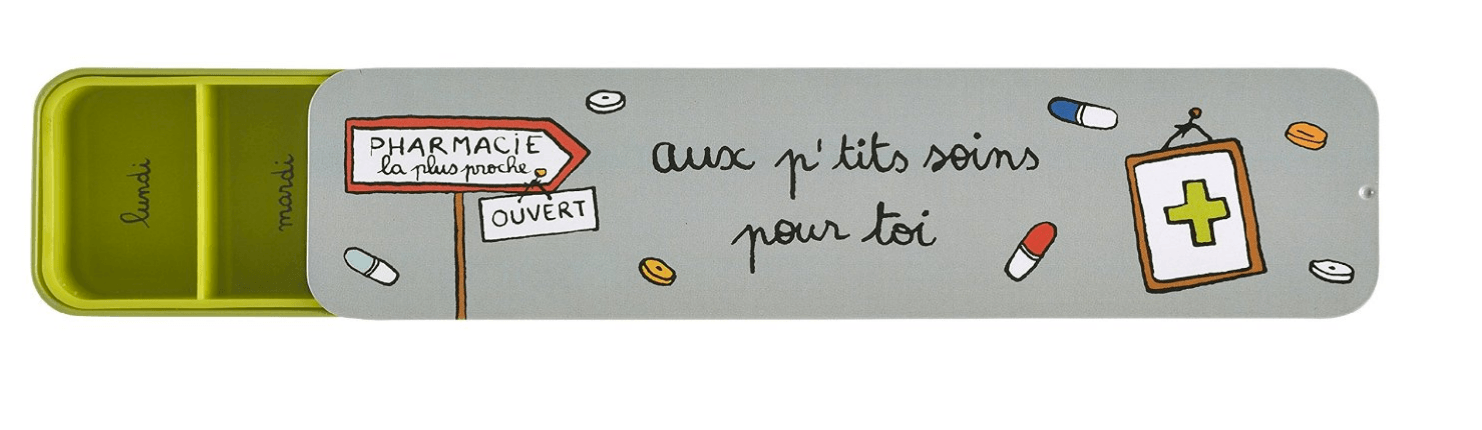 lundi
mardi
PHARMACIE
la plus proche
OUVERT
aux p'tits soins
pour toi